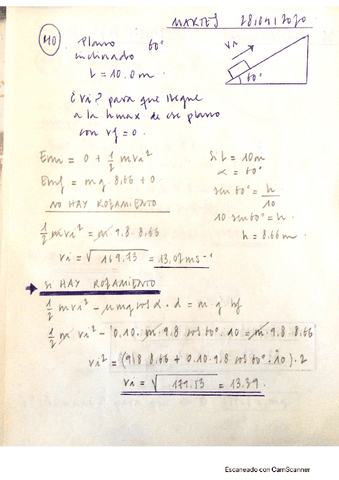 MARTES 28/04/2020
40 Plano 60°
inclinado
L = 10,0 m
vi
60°
¿Vi? para que llegue
a la hmax de ese plano
con vf = 0.
Emi = 0 + 1/2 mvi²
Emf = m g 8.66 + 0
NO HAY ROZAMIENTO
1/2 mvi² = m 9.8 8.66
vi = √169.73 = 13,02 ms⁻¹
Si L = 10m
α = 60°
sen 60° = h/10
10 sen 60° = h
h = 8.66 m
SI HAY ROZAMIENTO
1/2 mvi² - μmg cos α · d = m g hf
1/2 m vi² - 0.10 · m · 9.8 cos 60° · 10 = m · 9.8 8.66
vi² = (9.8 8.66 + 0.10 · 9.8 cos 60° · 10) · 2
vi = √179.53 = 13.39
Escaneado con CamScanner